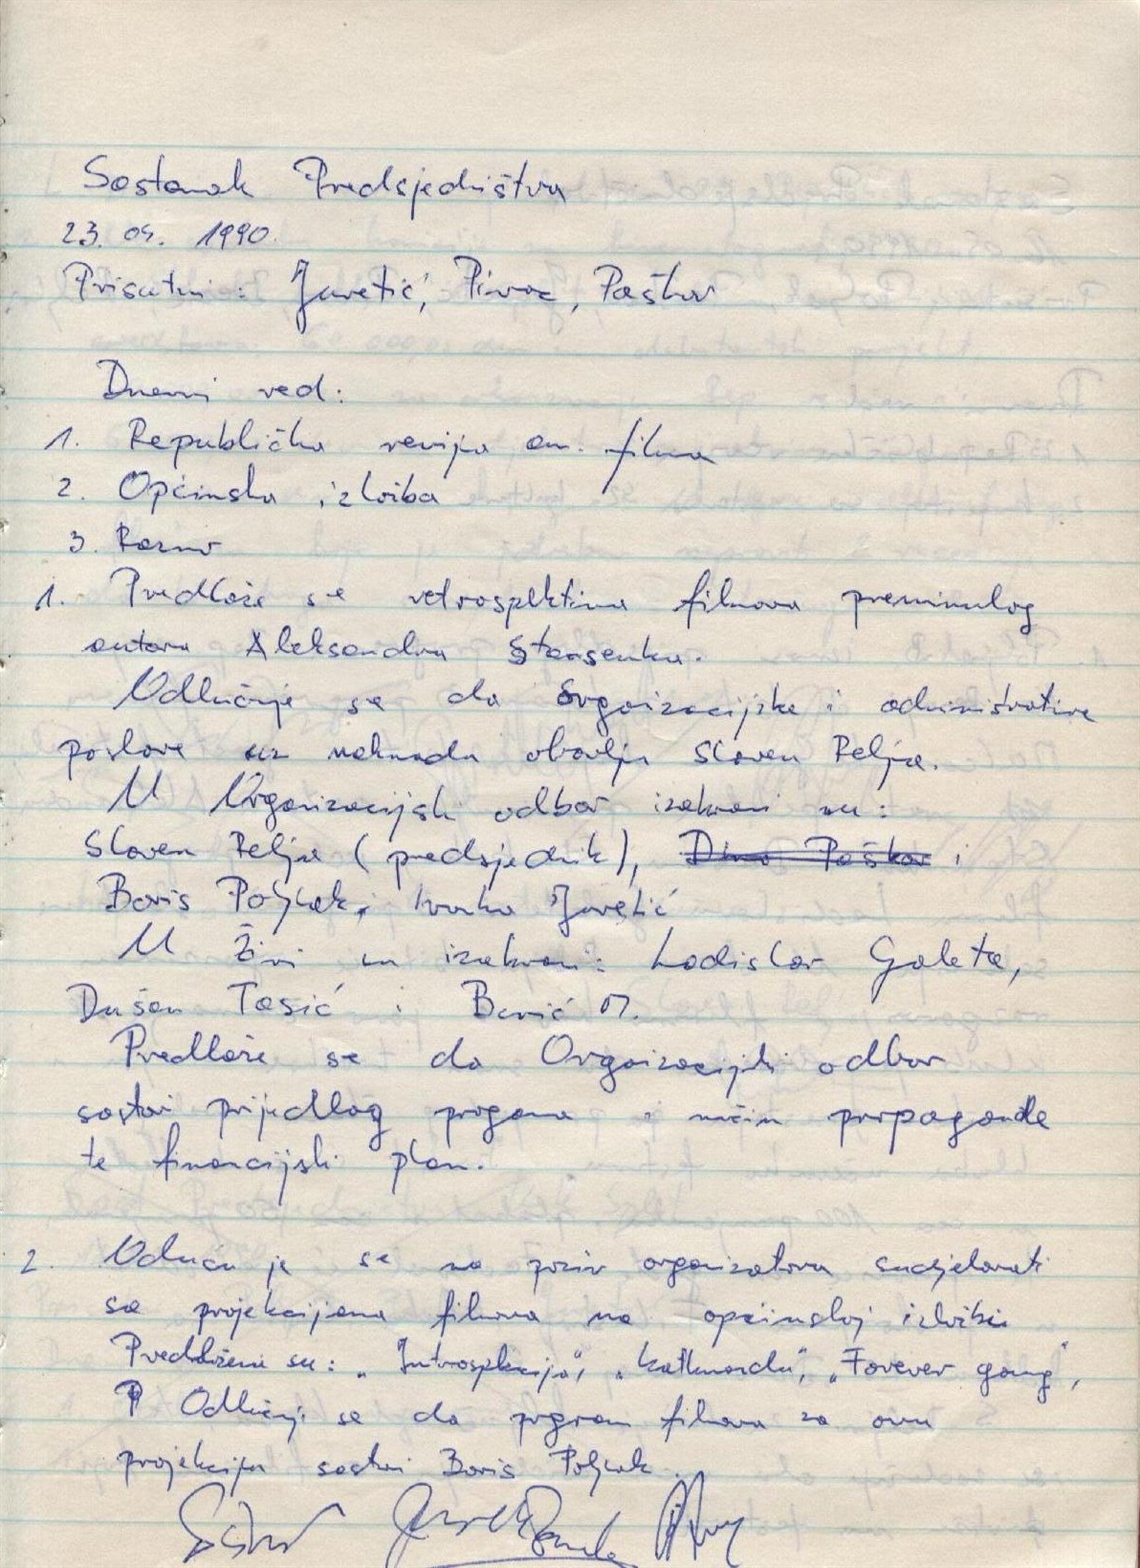 Sostanak Predsjedništva
23. 04. 1990.
Prisutni: Juretić, Pivac, Paškov
Dnevni red:
1. Republička revija am. filma
2. Općinska izložba
3. Razno
1. Predlaže se retrospektiva filmova preminulog
autora Aleksandra Stasenka.
Odlučuje se da organizacijske i administrative
poslove uz naknadu obavlja Sloven Pelja.
U Organizacijski odbor izabrani su:
Sloven Pelja (predsjednik), Dino Paškov i
Boris Poljak, Ivanka Juretić
U Žiri su izabrani: Ladislav Galeta,
Dušan Tasić i Barić M.
Predlaže se da Organizacijski odbor
sastavi prijedlog programa i način propagande
te financijski plan.
2. Odlučuje se na poziv organizatora sudjelovati
sa projekcijama filmova na općinskoj izložbi
Predloženi su: „Introspekcija", „Katkmandu", „Forever gang",
Odlučuje se da program filmova za ovu
projekciju sastavi Boris Poljak.